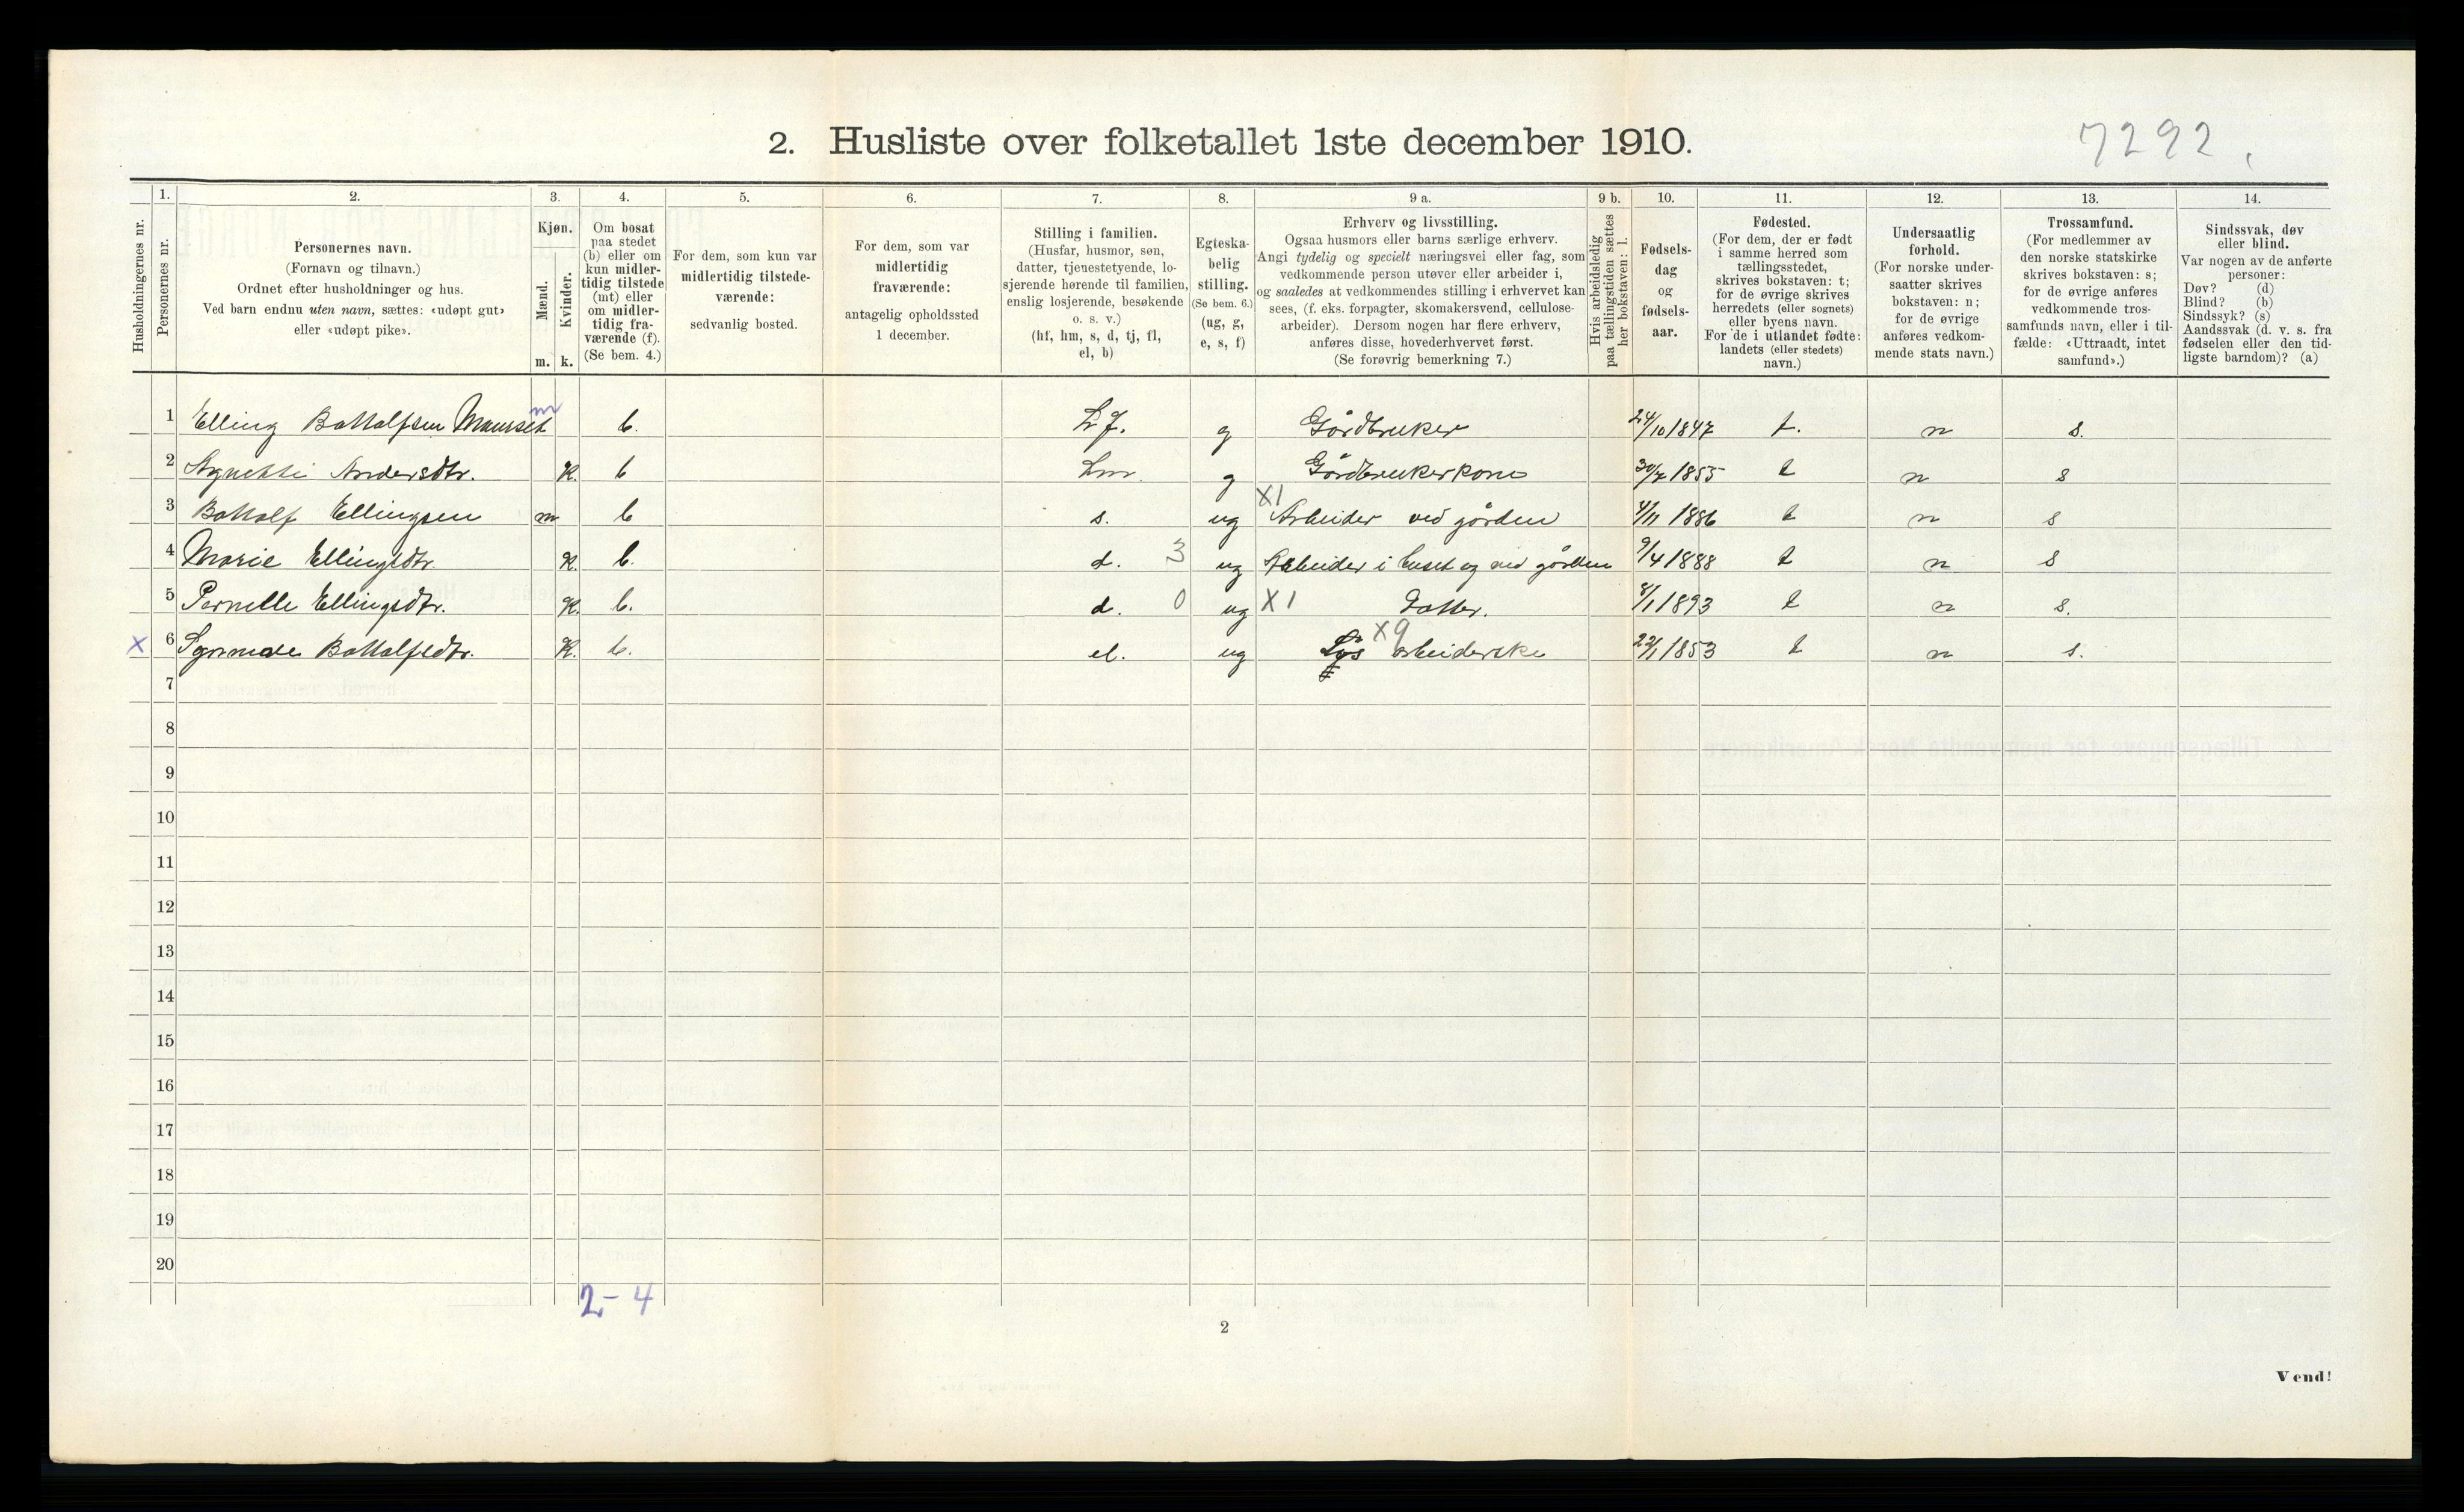 2. Husliste over folketallet 1ste december 1910.
7292.
Husholdningernes nr.
1.
Personernes nr.
2.
Personernes navn.
(Fornavn og tilnavn.)
Ordnet efter husholdninger og hus.
Ved barn endnu uten navn, sættes: «udøpt gut»
eller «udøpt pike».
3.
Kjøn.
Mænd.
Kvinder.
m. k.
4.
Om bosat
paa stedet
(b) eller om
kun midler-
tidig tilstede
(mt) eller
om midler-
tidig fra-
værende (f).
(Se bem. 4.)
5.
For dem, som kun var
midlertidig tilstede-
værende:
sedvanlig bosted.
6.
For dem, som var
midlertidig
fraværende:
antagelig opholdssted
1 december.
7.
Stilling i familien.
(Husfar, husmor, søn,
datter, tjenestetyende, lo-
sjerende hørende til familien,
enslig losjerende, besøkende
o. s. v.)
(hf, hm, s, d, tj, fl,
el, b)
8.
Egteska-
belig
stilling.
(Se bem. 6.)
(ug, g,
e, s, f)
9 a.
Erhverv og livsstilling.
Ogsaa husmors eller barns særlige erhverv.
Angi tydelig og specielt næringsvei eller fag, som
vedkommende person utøver eller arbeider i,
og saaledes at vedkommendes stilling i erhvervet kan
sees, (f. eks. forpagter, skomakersvend, cellulose-
arbeider). Dersom nogen har flere erhverv,
anføres disse, hovederhvervet først.
(Se forøvrig bemerkning 7.)
9 b.
Hvis arbeidsledig
paa tællingstiden sættes
her bokstaven: l.
10.
Fødsels-
dag
og
fødsels-
aar.
11.
Fødested.
(For dem, der er født
i samme herred som
tællingsstedet,
skrives bokstaven: t;
for de øvrige skrives
herredets (eller sognets)
eller byens navn.
For de i utlandet fødte:
landets (eller stedets)
navn.)
12.
Undersaatlig
forhold.
(For norske under-
saatter skrives
bokstaven: n;
for de øvrige
anføres vedkom-
mende stats navn.)
13.
Trossamfund.
(For medlemmer av
den norske statskirke
skrives bokstaven: s;
for de øvrige anføres
vedkommende tros-
samfunds navn, eller i til-
fælde: «Uttraadt, intet
samfund».)
14.
Sindssvak, døv
eller blind.
Var nogen av de anførte
personer:
Døv? (d)
Blind? (b)
Sindssyk? (s)
Aandssvak (d. v. s. fra
fødselen eller den tid-
ligste barndom)? (a)
1 Elling Bottolfsen m b. hf. g Gårdbruker 24/10 1847 t. n s.
2 Agnethe Andersdtr. K. b hm g Gårdbrukerkone 30/7 1855 t n s
3 Bottolf Ellingsen m b s. ug X1 Arbeider ved gården 4/11 1886 t n s
4 Marie Ellingsdtr. K. b. d. 3 ug Arbeider i huset og ved gården 9/4 1888 t n s
5 Pernelle Ellingsdtr. K. b. d. 0 ug X1 Datter. 8/1 1893 t n s.
X 6 Bottolfsdtr. K. b. el. ug X9 arbeiderske 22/1 1853 t n s.
7
8
9
10
11
12
13
14
15
16
17
18
19
20
2 - 4
2
Vend!